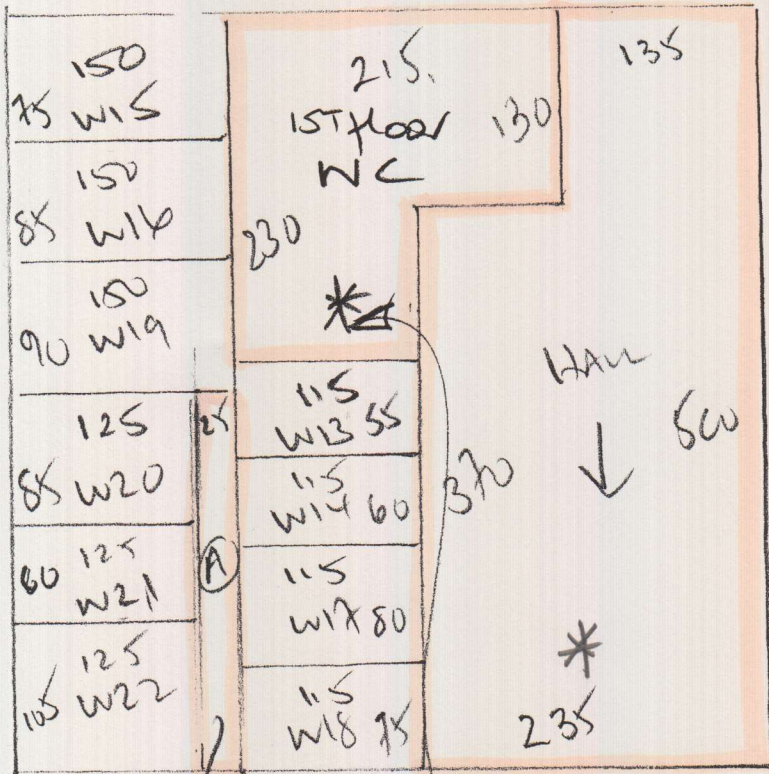 150
75 W15
150
85 W16
150
90 W19
125
85 W20
125
60 W21
125
105 W22
25
A
215.
1ST floor
WC
130
230
115
W13 55
115
W14 60
115
W17 80
115
W18 75
370
135
HALL
500
235